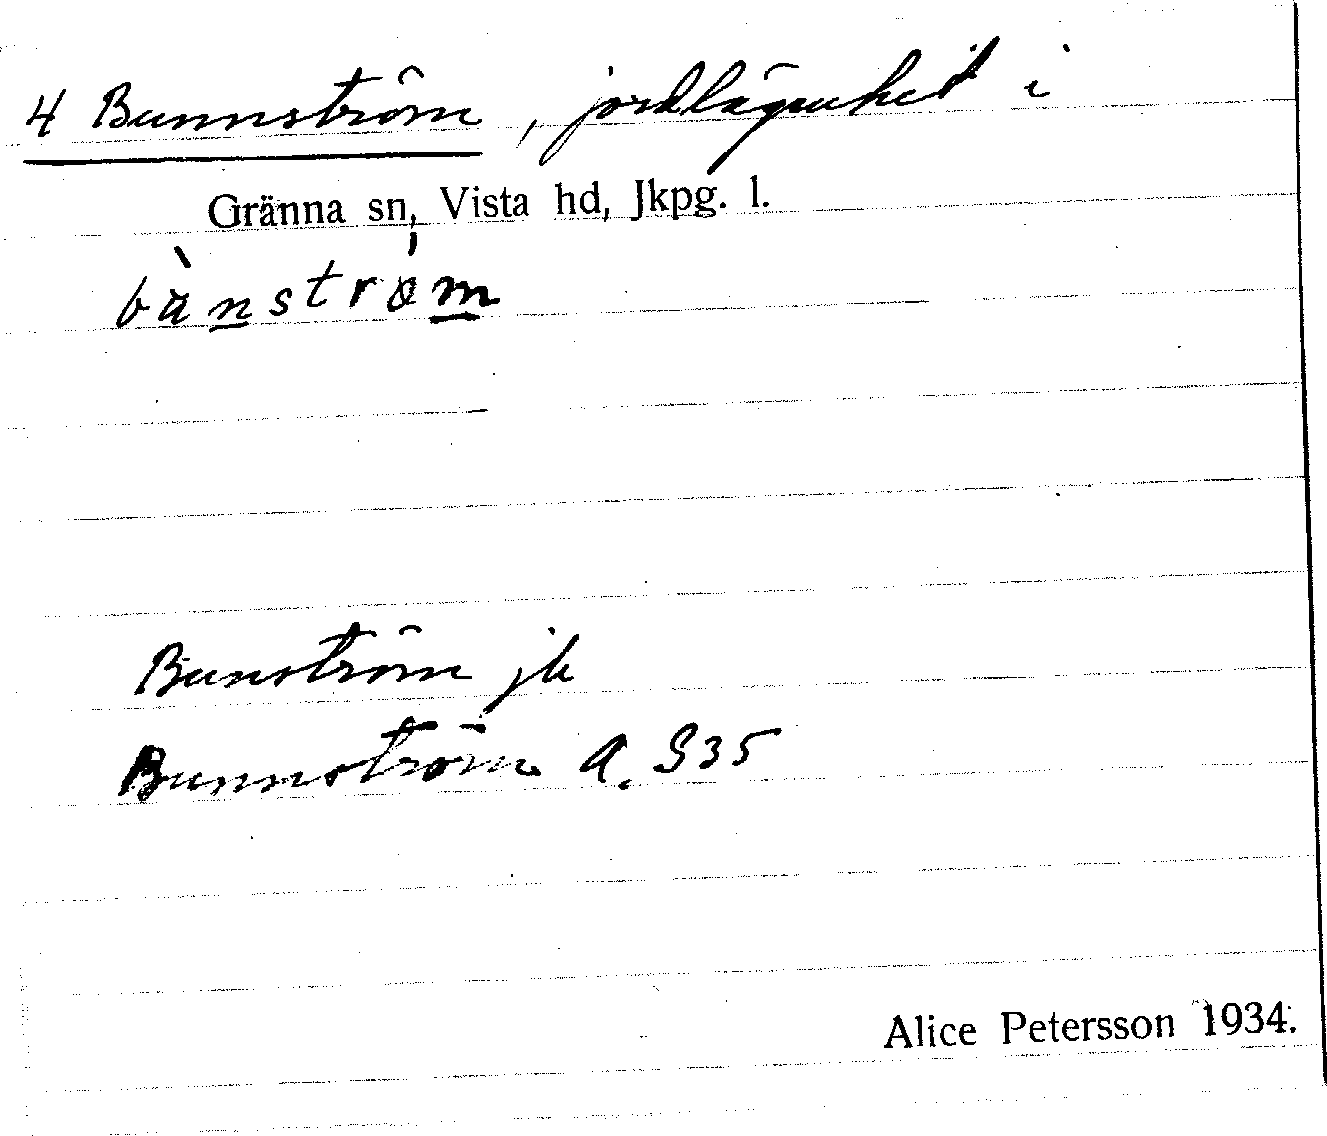 4 Bunnström, jordlägenhet i
Gränna sn, Vista hd, Jkpg. l.
bànstrǿm
Bunström jb
Bunnström A. S35
Alice Petersson 1934.